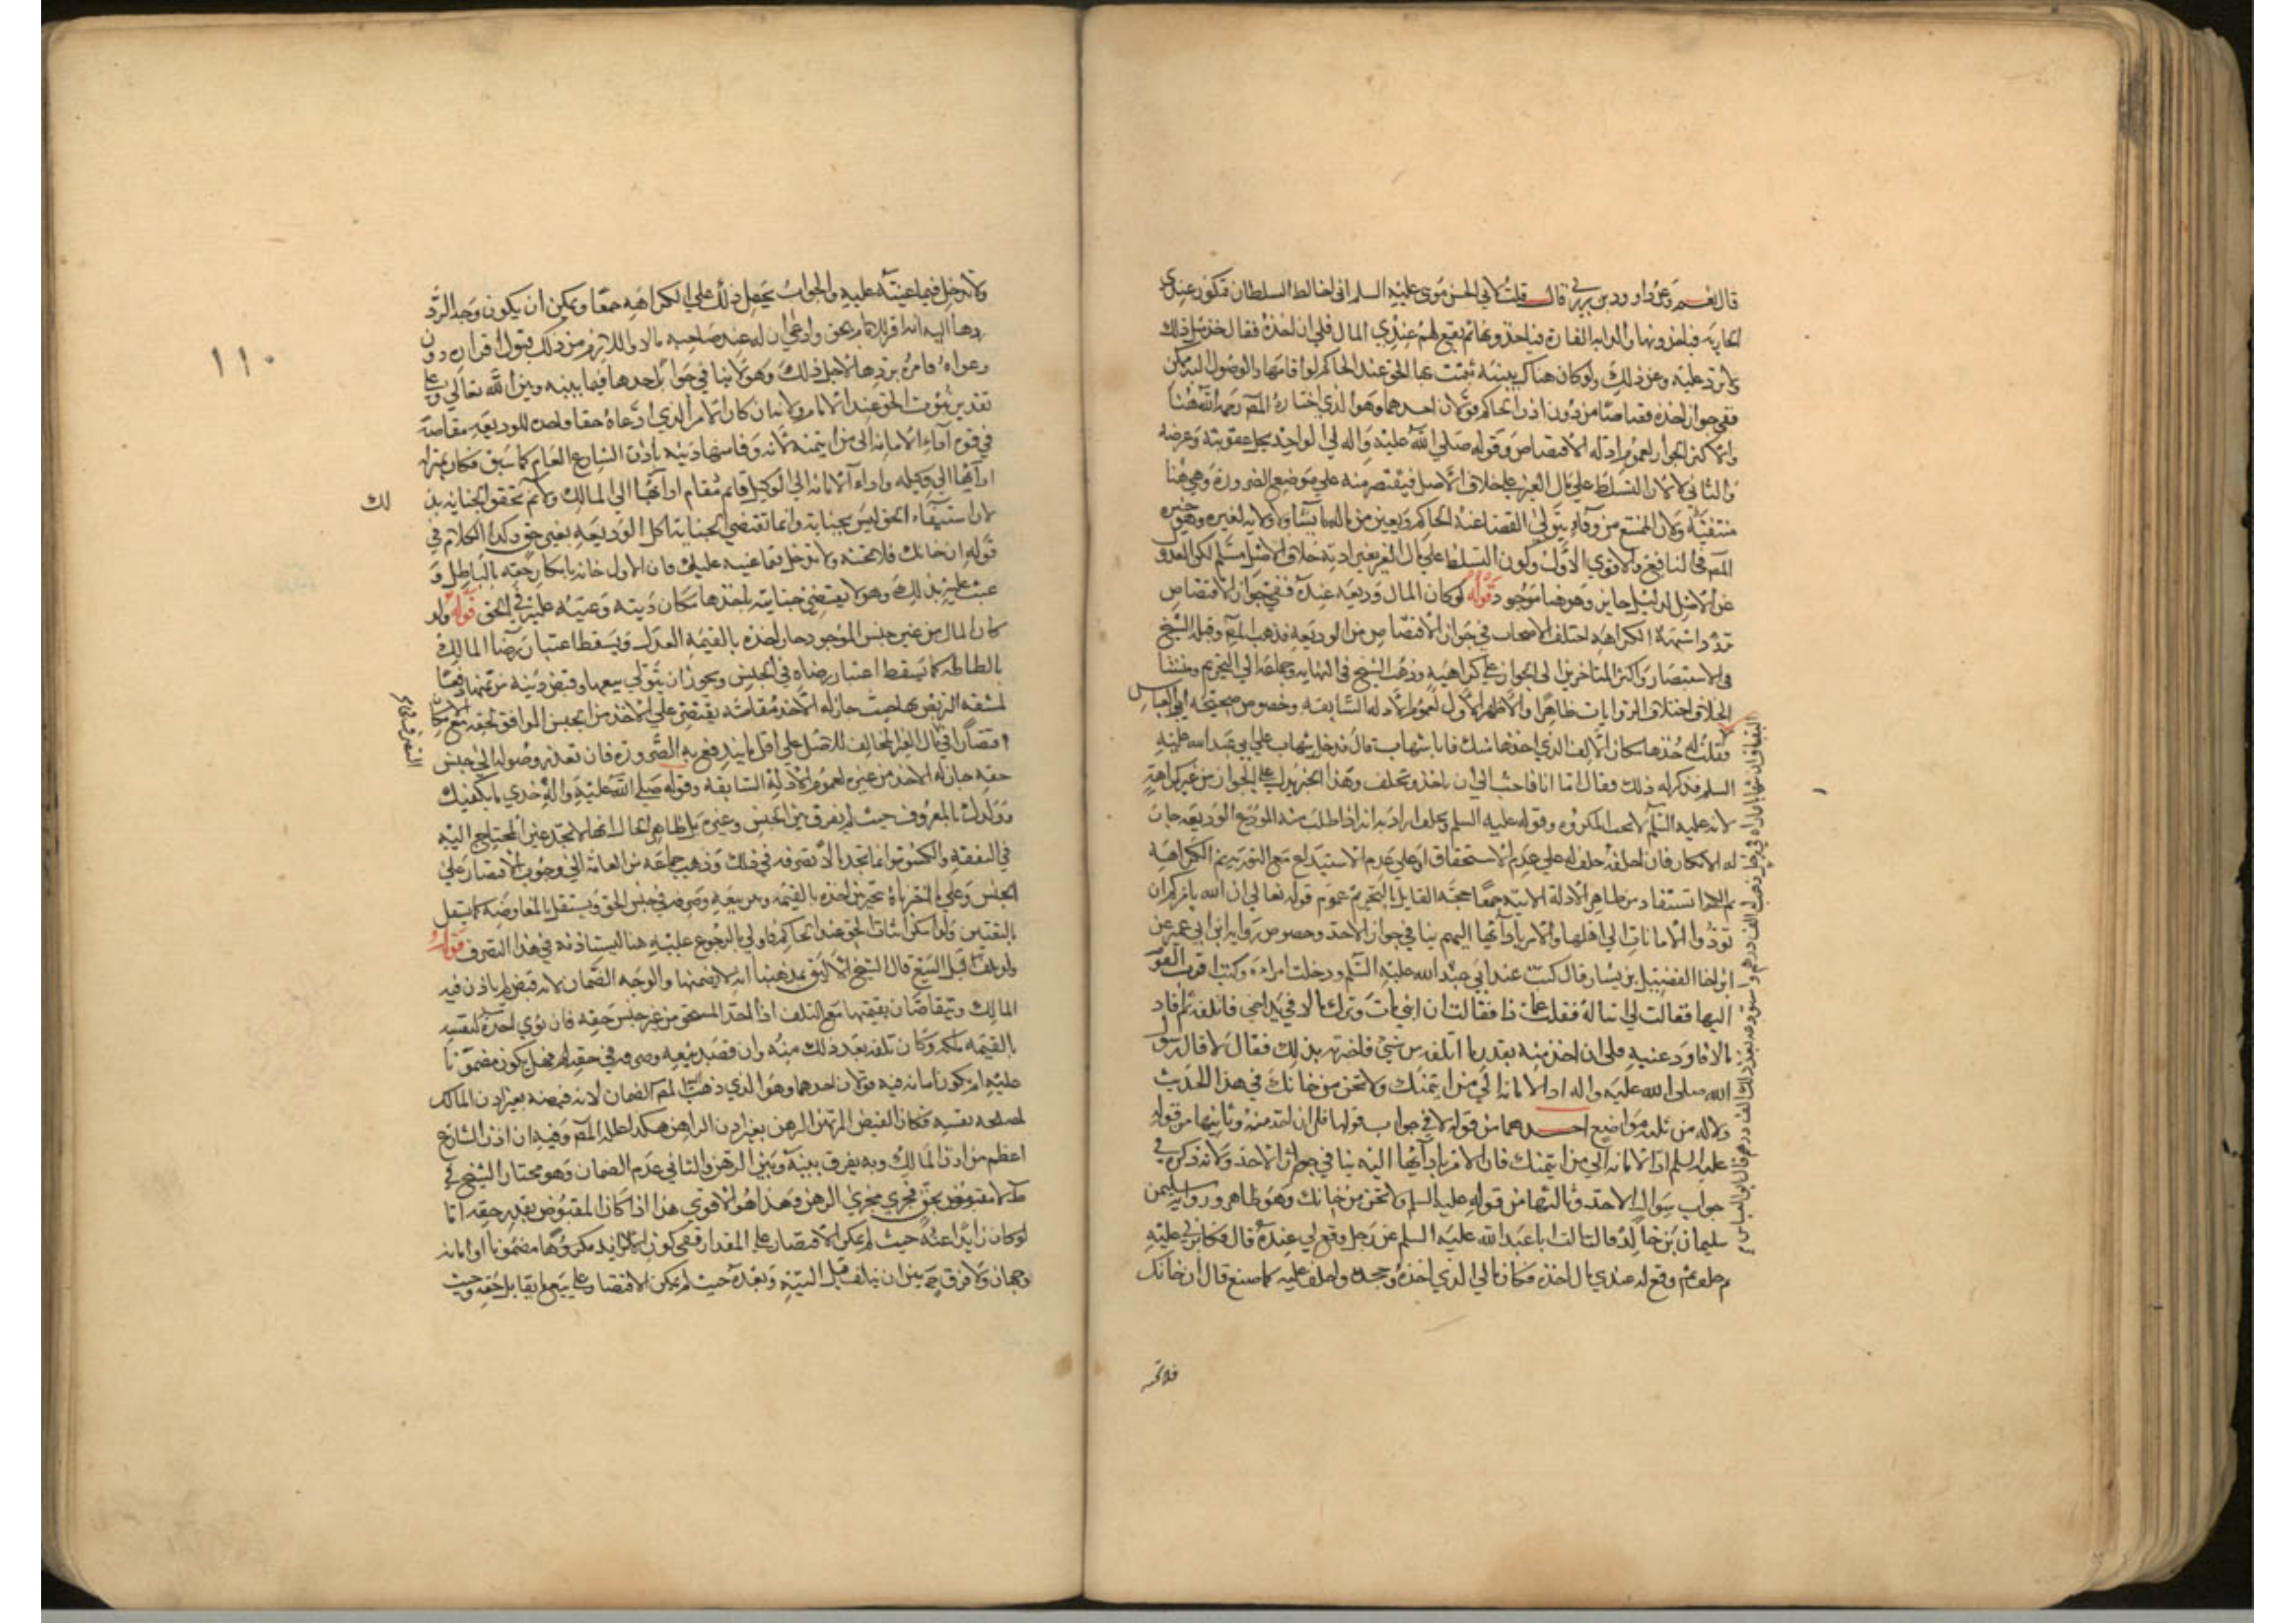 قال نعم وعن داود بن زربي قال قلت لابي الحسن موسى عليه السلم اني اخالط السلطان فتكون عندي
الجارية فياخذونها والدابة الفارهة فياخذونها ثم يقع لهم عندي المال فلي ان اخذه فقال خذ مثل ذلك
ولا تزد عليه وغير ذلك ولو كان هناك بينة تثبت بها الحق عند الحاكم لو اقامها والوصول اليه ممكن
ففي جواز اخذه قصاصا من دون اذن الحاكم قولان احدهما وهو الذي اختاره المص رحمه الله هنا
والاكثر الجواز لعموم ادلة الاقتصاص وقوله صلي الله عليه واله لي الواجد يحل عقوبته وعرضه
والثاني لا لان التسلط علي مال الغير علي خلاف الاصل فيقتصر منه علي موضع الضرورة وهي هنا
منتفية ولان الممتنع من وفاء يتولي القضا عنه الحاكم ويعين من ماله ما يشا ولا ولاية لغيره وهو خيره
المص في النافع والاقوي الاول وكون التسلط علي مال الغير بغير اذنه خلاف الاصل مسلم لكن العدو
عن الاصل لدليل جايز وهو هنا موجود قوله لو كان المال وديعة عنده ففي جواز الاقتصاص
تردد اشبهه الكراهة اختلف الاصحاب في جواز الاقتصاص من الوديعة فذهب المص وقبله الشيخ
في الاستبصار واكثر المتاخرين الى الجواز علي كراهية وذهب الشيخ في النهاية وجماعة الي التحريم ومنشا
الخلاف اختلاف الروايات ظاهرا والاظهر الاول لعموم الادلة السابقة وخصوص صحيحة ابي العباس
فقلت له خذها مكان الالف الذي اخذها منك فابا شهاب قال فدخل شهاب علي ابي عبد الله عليه
السلم فذكر له ذلك فقال اما انا فاحب الي ان ياخذ ويحلف وهذا الخبر يدل علي الجواز من غير كراهة
لانه عليه السلم لا يحب المكروه وقوله عليه السلم ويحلف اراد به انه اذا طلب منه المودع الوديعة جاز
له الانكار فان احلفه حلف له علي عدم الاستحقاق او علي عدم الاستيداع مع التورية نعم الكراهة
تستفاد من ظاهر الادلة الاتية جمعا حجة القايل بالتحريم عموم قوله تعالي ان الله يامركم ان
تؤدوا الامانات الي اهلها والامر بادائها اليهم ينافي جواز الاخذ وخصوص رواية ابن ابي عمير عن
ابن اخا الفضيل بن يسار قال كنت عند ابي عبد الله عليه السلم ودخلت امراة وكنت اقرب القوم
اليها فقالت لي اساله فقلت عما ذا فقالت ان ابني مات وترك مالا في يد اخي فاتلفه ثم افاد
مالا فاودعنيه فلي ان اخذ منه بقدر ما اتلف من شيئ فاخبرته بذلك فقال لا قال رسول
الله صلى الله عليه واله اد الامانة الي من ايتمنك ولا تخن من خانك في هذا الحديث
دلالة من ثلثة مواضع احدهما من قوله لا في جواب قولها فلي ان اخذ منه وثانيها من قوله
عليه السلم اد الامانة الي من ايتمنك فان الامر بادائها اليه ينافي جواز الاخذ ولانه ذكره في
جواب سوال الاخذ وثالثها من قوله عليه السلم ولا تخن من خانك وهو ظاهر ورواية سليمن
سليمان بن خالد قال سالت ابا عبد الله عليه السلم عن رجل وقع لي عنده قال فكابرني عليه
ثم حلف ثم وقع له عندي مال اخذه مكان مالي الذي اخذه وجحده واحلف عليه كما صنع قال ان خانك
فلا تخنه
البقباق ان شهابا ماراه في رجل ذهب له الف درهم واستودعه بعد ذلك الف درهم قال ابو العباس
١١٠
ولا تدخل فيما عبته عليه والجواب يحمل ذلك علي الكراهة جمعا ويمكن ان يكون وجه الرد
ودعواه فامره بردها لاجل ذلك وهو لا ينافي جواز اخذها فيما بينه وبين الله تعالي وعلى
تقدير ثبوت الحق عند الامام ولانه ان كان الامر الذي ادعاه حقا فاخذه للوديعة مقاصة
في قوة اداء الامانة الى من ايتمنه لانه وفا بها دينه باذن الشارع العام كما سبق فكان بمنزلة
ادائها الي وكيله واداء الامانة الي الوكيل قائم مقام ادائها الي المالك ولا نم تحقق الخيانة بذ
لك
لان استيفاء الحق ليس بخيانة وانما تقتضي الخيانة اكل الوديعة بغير حق وكذا الكلام في
قوله ان خانك فلا تخنه ولا تدخل فيما عبته عليه فان الاول خانه بانكار حقه بالباطل و
عبت عليه بذلك وهو لا يقتضي خيانته باخذها مكان دينه وعيبه عليه في الحق قوله ولو
كان المال من غير جنس الموجود جاز اخذه بالقيمة العدل ويسقط اعتبار رضا المالك
بالطاطه كما يسقط اعتبار رضاه في الجنس ويجوز ان يتولي بيعها وقبض دينه من ثمنها دفعا
لمشقة التربص بها حيث جاز له الاخذ مقاصة يقتضي علي الاخذ من الجنس الموافق لحقه مع الامكان
اقتصارا في مال الغير المخالف للاصل علي اقل ما يندفع به الضرورة فان تعذر وصوله الي جنس
حقه جاز له الاخذ من غيره لعموم الادلة السابقة وقوله صلي الله عليه واله خذي ما يكفيك
وولدك بالمعروف حيث لم يفرق بين الجنس وغيره بل ظاهر الحال انها لا تجد عين المحتاج اليه
في النفقة والكسوة وانما تجد مالا تصرفه في ذلك وذهب جماعة من العامة الي وجوب الاقتصار علي
الجنس وعلي ما اخترناه تخير بين اخذه بالقيمة وبين بيعه وصرفه في جنس الحق ويستقل بالمعاوضة كما يستقل
بالتعيين ولو امكن اثبات الحق عند الحاكم فاولي بالرجوع عليه هنا ليستاذنه في هذا التصرف قوله
ولو تلفت قبل البيع قال الشيخ الاليق بمذهبنا انه لا يضمنها والوجه الضمان لانه قبض لم ياذن فيه
المالك ويتقاصان بقيمتها مع التلف اذا اخذ المستحق من غير جنس حقه فان نوي اخذه لنفسه
بالقيمة ملكه وكان تلفه بعد ذلك منه وان قصد بيعه وصرفه في حقه فهل يكون مضمونا
عليه ام يكون امانة فيه قولان احدهما وهو الذي ذهب اليه المص الضمان لانه قبضه بغير اذن المالك
لمصلحة نفسه فكان كقبض المرتهن الرهن بغير اذن الراهن هكذا علله المص وفيه ان اذن الشارع
اعظم من اذن المالك وبه يفرق بينه وبين الرهن والثاني عدم الضمان وهو مختار الشيخ في
ط لانه مقبوض بحق فجري مجري الرهن وهذا هو الاقوي هذا اذا كان المقبوض بقدر حقه اما
لو كان زايدا عنه حيث لم يمكن الاقتصار علي المقدار ففي كون الزايد مضمونا او امانة
وجهان ولا فرق بين ان يتلف قبل البينة وبعده حيث لم يمكن الاقتصار علي بيع ما يقابل حقه وحيث